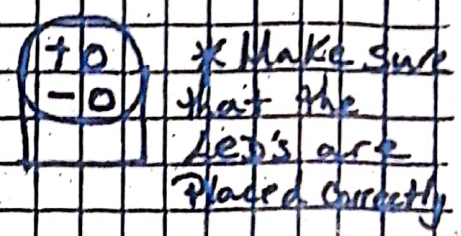 + o
- o
* Make sure
that the
LED's are
Placed correctly